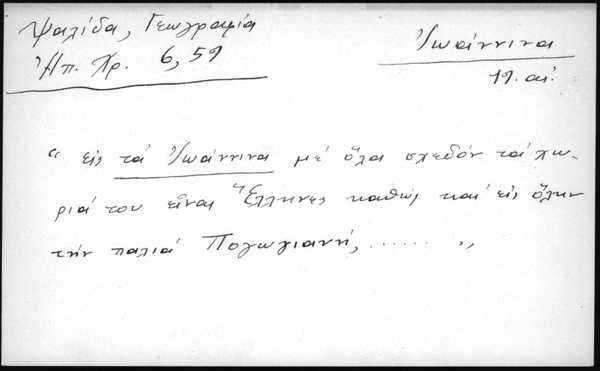 Ψαλίδα, Γεωγραφία
Ἠπ. Χρ. 6, 59
Ἰωάννινα
19. αἰ.
“ εἰς τά Ἰωάννινα μέ ὅλα σχεδόν τά χω-
ριά του εἶναι Ἕλληνες καθώς καί εἰς ὅλην
τήν παλιά Πογωγιανή, ...... ”